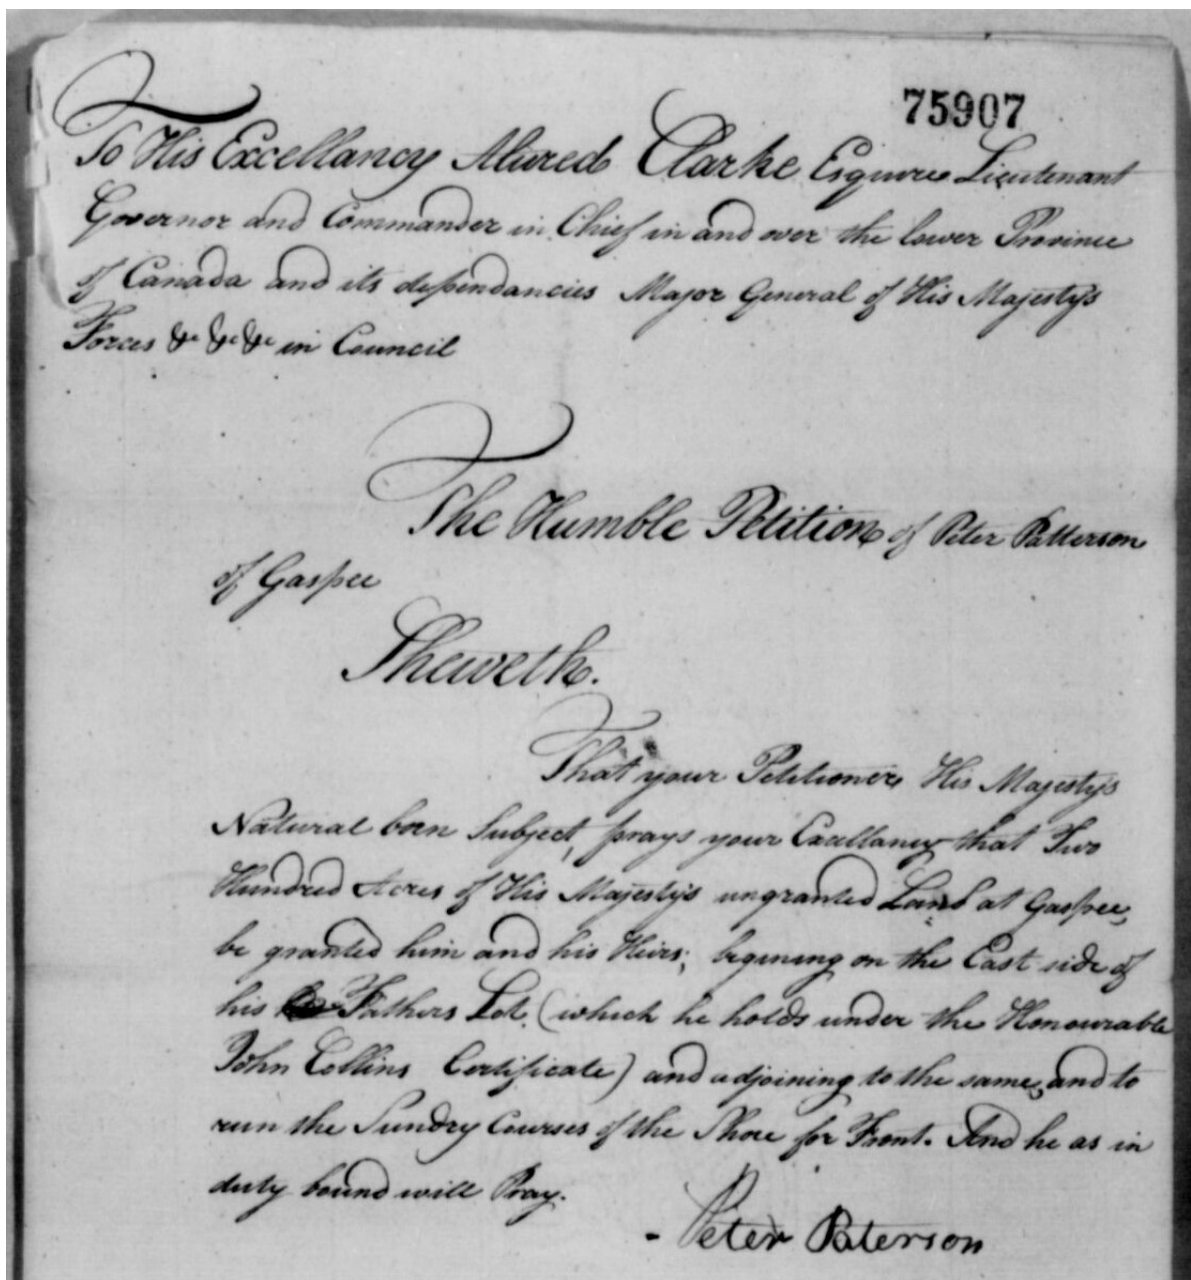 75907
To His Excellancy Alured Clarke Esquire Lieutenant
Governor and Commander in Chief in and over the lower Province
of Canada and its dependancies Major General of His Majestys
Forces &c &c &c in Council
The Humble Petition of Peter Patterson
of Gaspee
Sheweth.
That your Petitioner, His Majestys
Natural born Subject, prays your Excellancy that Two
Hundred Acres of His Majestys ungranted Land at Gaspee,
be granted him and his Heirs; begining on the East side of
his Fathers Lot, (which he holds under the Honourable
John Collins Certificate) and adjoining to the same, and to
run the Sundry Courses of the Shore for Front. And he as in
duty bound will Pray.
- Peter Paterson